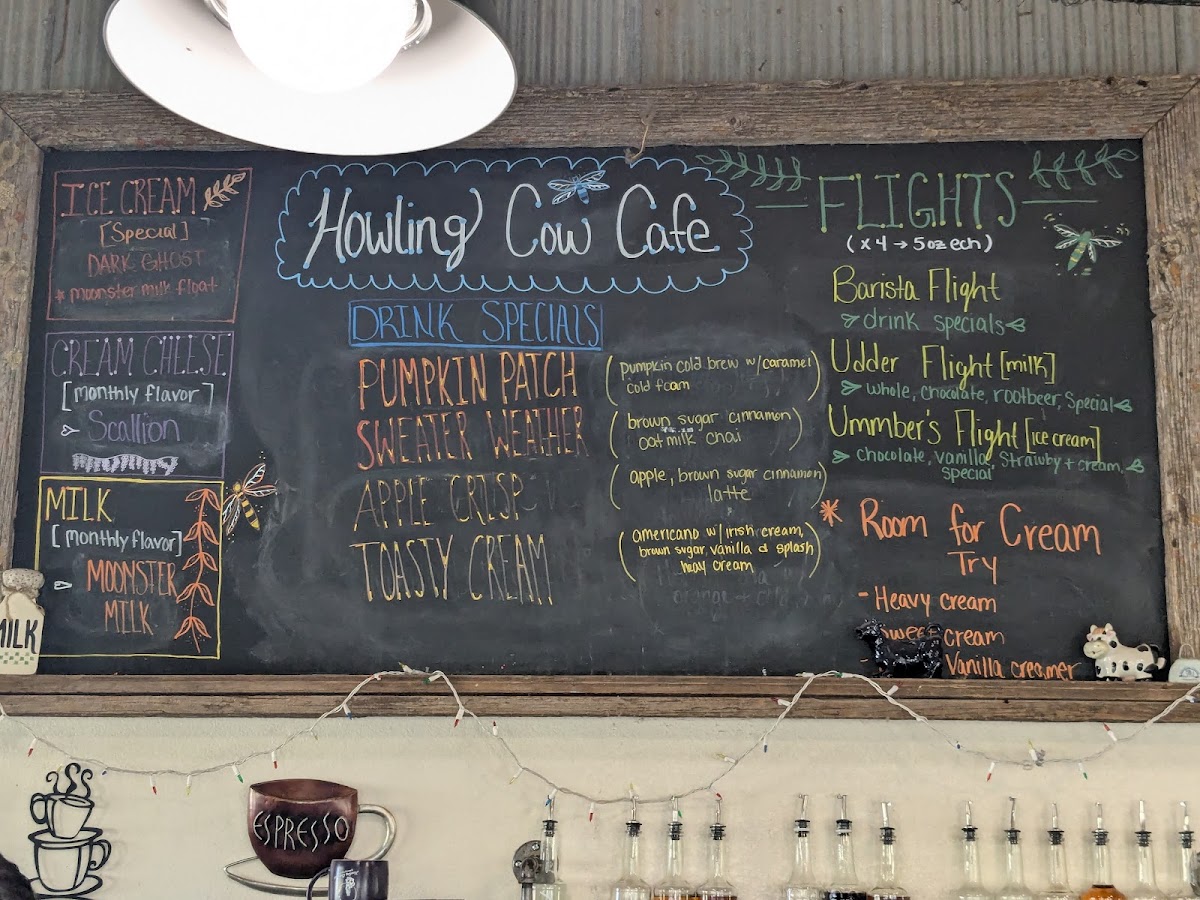 ICE CREAM
[Special]
DARK GHOST
* moonster milk float
CREAM CHEESE
[monthly flavor]
Scallion
MILK
[monthly flavor]
MOONSTER
MILK
Howling Cow Cafe
DRINK SPECIALS
PUMPKIN PATCH
(pumpkin cold brew w/caramel
cold foam)
SWEATER WEATHER
(brown sugar cinnamon
oat milk chai)
APPLE CRISP
(apple, brown sugar cinnamon
latte)
TOASTY CREAM
(americano w/irish cream,
brown sugar, vanilla & splash
heavy cream)
FLIGHTS
(x4 → 5oz ech)
Barista Flight
drink specials
Udder Flight [milk]
whole, chocolate, rootbeer, Special
Ummber's Flight [ice cream]
chocolate, vanilla, Strawby + cream,
special
* Room for Cream
Try
- Heavy cream
Sweet cream
Vanilla creamer
MILK
ESPRESSO